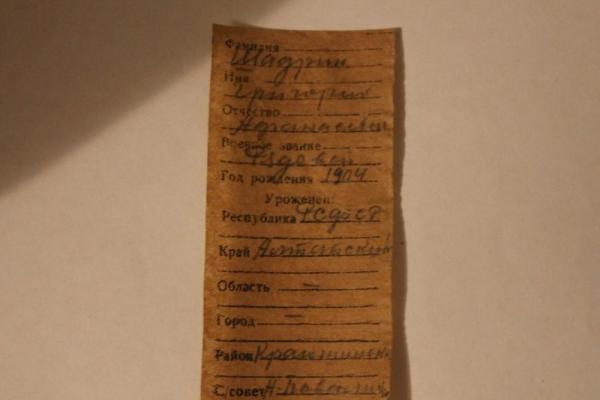 Фамилия
Шадрин
Имя
Григорий
Отчество
Афанасьевич
Военное звание
Рядовой
Год рождения 1904
Уроженец:
Республика РСФСР
Край Алтайский
Область —
Город —
Район
С/совет